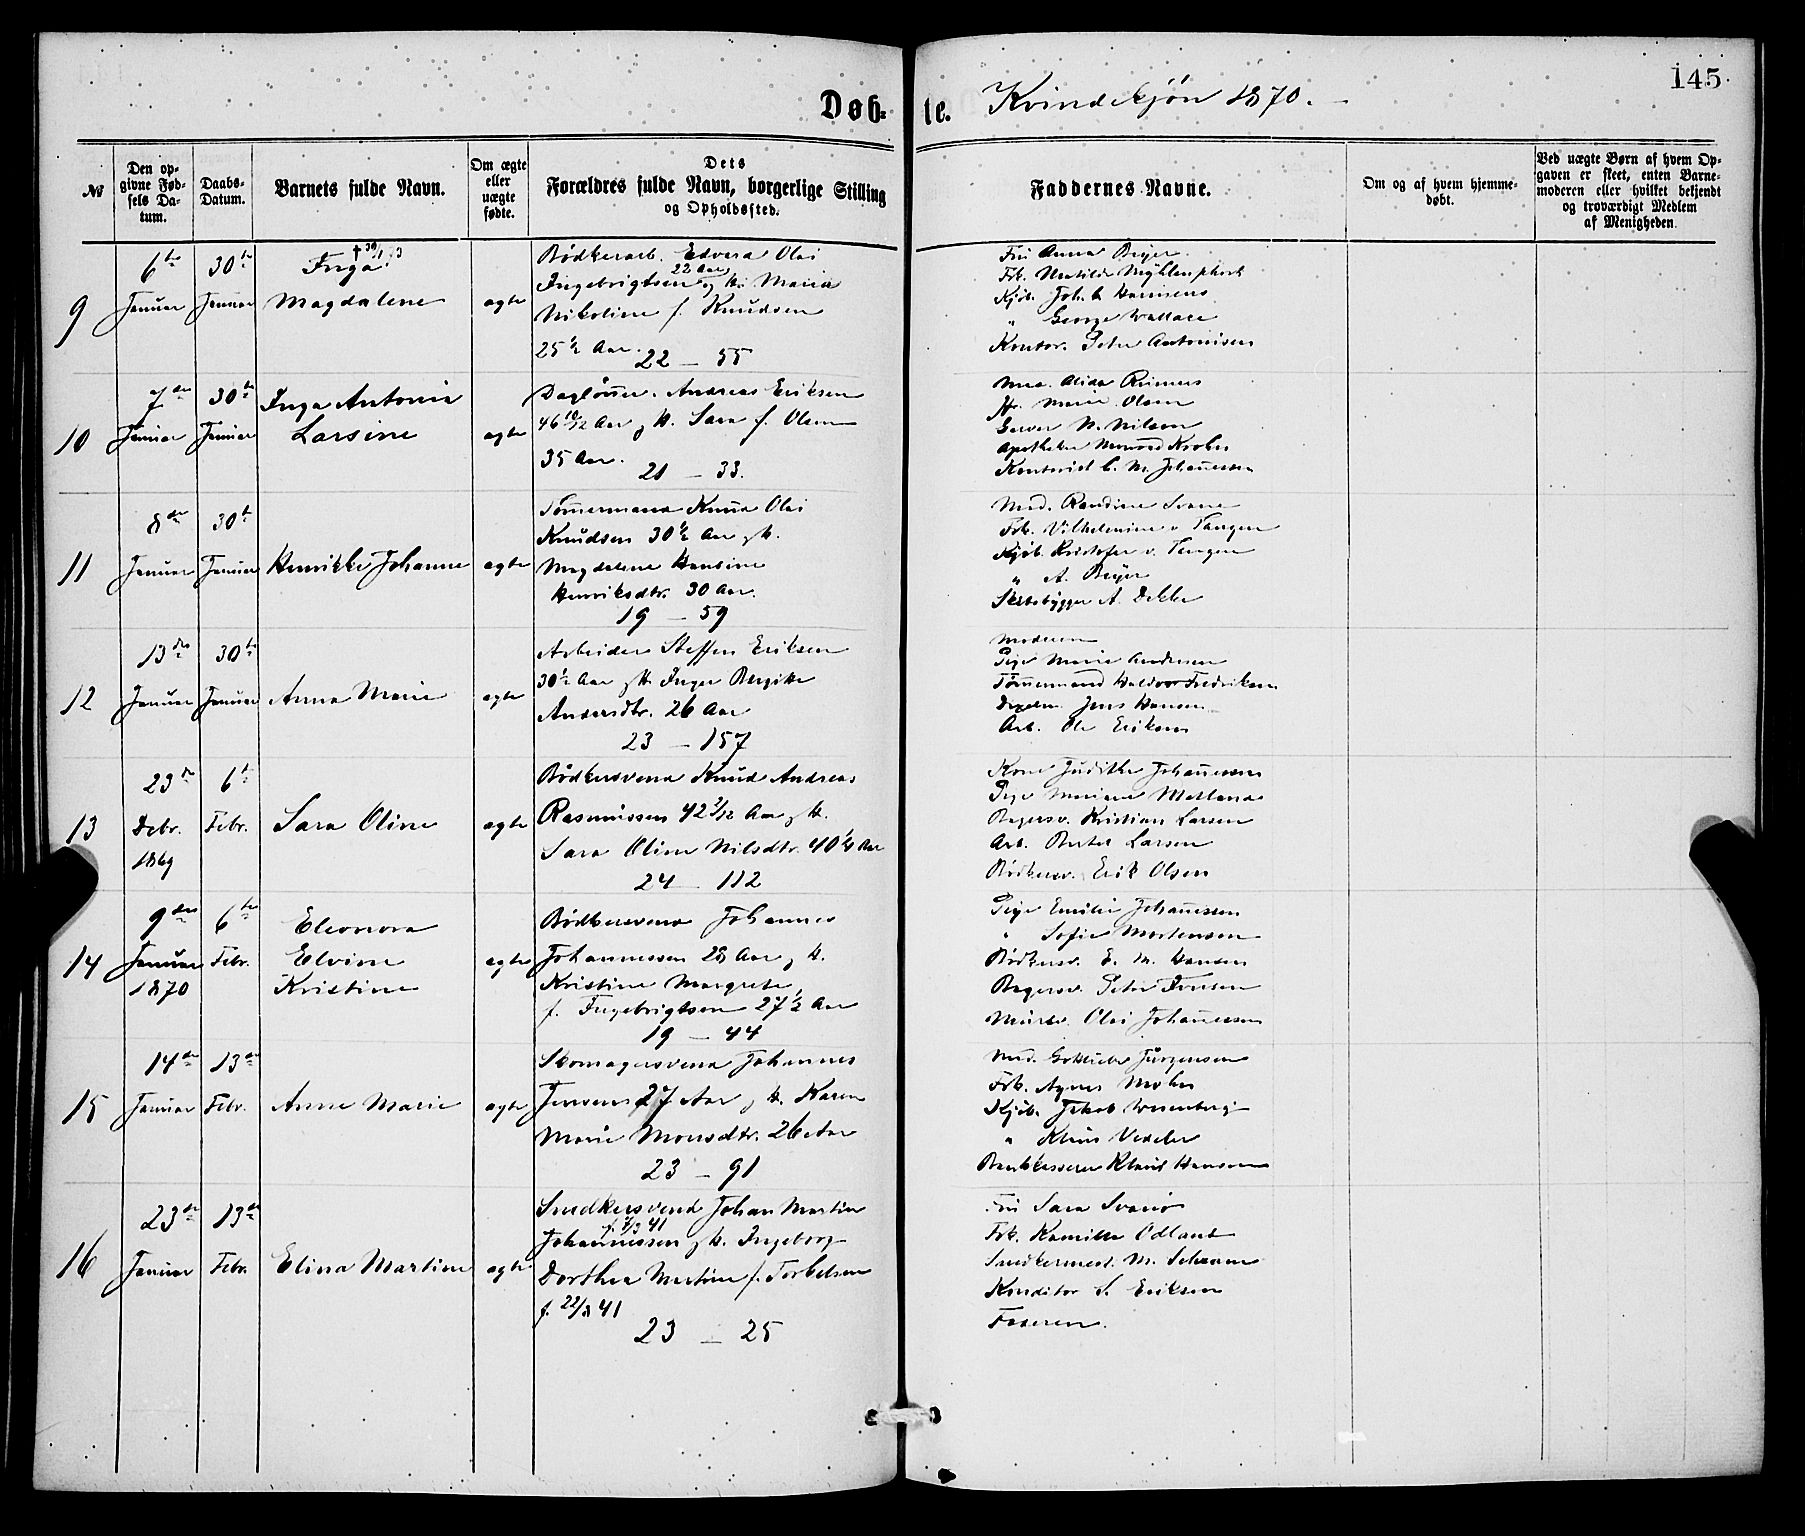 145
Døb= te. Kvindekjøn 1870.
№
Den opgivne Fødsels Datum.
Daabs-Datum.
Barnets fulde Navn.
Om ægte eller uægte fødte.
Dets Forældres fulde Navn, borgerlige Stilling og Opholdssted.
Faddernes Navne.
Om og af hvem hjemmedøbt.
Ved uægte Børn af hvem Opgaven er skeet, enten Barnemoderen eller hvilket bekjendt og troværdigt Medlem af Menigheden.
9
6te Januar
30te Januar
Inga
Magdalene
ægte
Bødkerarb. Edvard Olai
Ingebrigtsen 22 Aar og H. Maria
Nikoline f. Knudsen
25 1/2 Aar.
22 – 55
Frü Anna Beyer
Frk. Matilde
Kjöb. Joh.
" George Wallace
Kontor. Peter Antonisen
10
7de Januar
30te Januar
Inga Antonia
Larsine
ægte
Daglönner Andreas Eriksen
46 10/12 Aar og H. Sara f. Olsen
35 Aar.
21 – 33.
Mad. Alida Reimers
Jfr. Marie Olsen
Garver N. Nilsen
Apotheker Krohn
Kontorist C. M. Johannessen
11
8de Januar
30te Januar
Henrikke Johanne
ægte
Tömmermand Knud Olai
Knudsen 30 1/2 Aar og H.
Magdalene Hansine
Henriksdtr. 30 Aar.
19 – 59
Mad. Randine Svane
Frk. Vilhelmine v. Tangen
Kjöb. Kristofer v. Tangen
" A. Beyer
Skibsbygger A. Dekke
12
13de Januar
30te Januar
Anna Marie
ægte
Arbeider Steffen Eriksen
30 1/2 Aar og H. Inger Bergitte
Andersdtr. 26 Aar
23 – 157
Moderen
Pige Marie Andersen
Tömmermand Haldvor Fredriksen
Jens Hansen
Arb. Ole Eriksen
13
23de Debr. 1869
6te Febr.
Sara Oline
ægte
Bödkersvend Knud Andreas
Rasmussen 42 3/12 Aar og H.
Sara Oline Nilsdtr. 40 1/4 Aar
24 – 112
Kone Judithe Johannessen
Pige Mariane Metland
Bagersv. Kristian Larsen
Arb. Bertel Larsen
Bödkersv. Erik Olsen
14
9de Januar 1870
6te Febr.
Eleonora
Elvine
Kristine
ægte
Bödkersvend Johannes
Johannessen 28 Aar og H.
Kristine Margrete
f. Ingebrigtsen 27 1/2 Aar
19 – 44
Pige Emilie Johannessen
" Sofie Mortensen
Bödkersv. E. M. Hansen
Bagersv. Peter Iversen
Mursv. Olai Johannessen
15
14de Januar
13de Febr.
Anne Marie
ægte
Skomagersvend Johannes
Jensen 27 Aar og H. Karen
Marie Monsdtr. 26 Aar
23 – 91
Mad. Gottliebe Jürgensen
Frk. Agnes Mohn
Kjöb. Jakob Wesenberg
" Klaus Vedeler
Bankkasserer Klaus Hansen
16
23de Januar
13de Febr.
Elina Martine
ægte
Snedkersvend Johan Martin
Johannessen og H. Ingeborg
Dorthea Martine f. Torbelsen
f. 22/8 41
23 – 25
Frü Sara Svanö
Frk. Kamilla Odland
Snedkermest. M. Schram
Konditor S. Eriksen
Faderen.